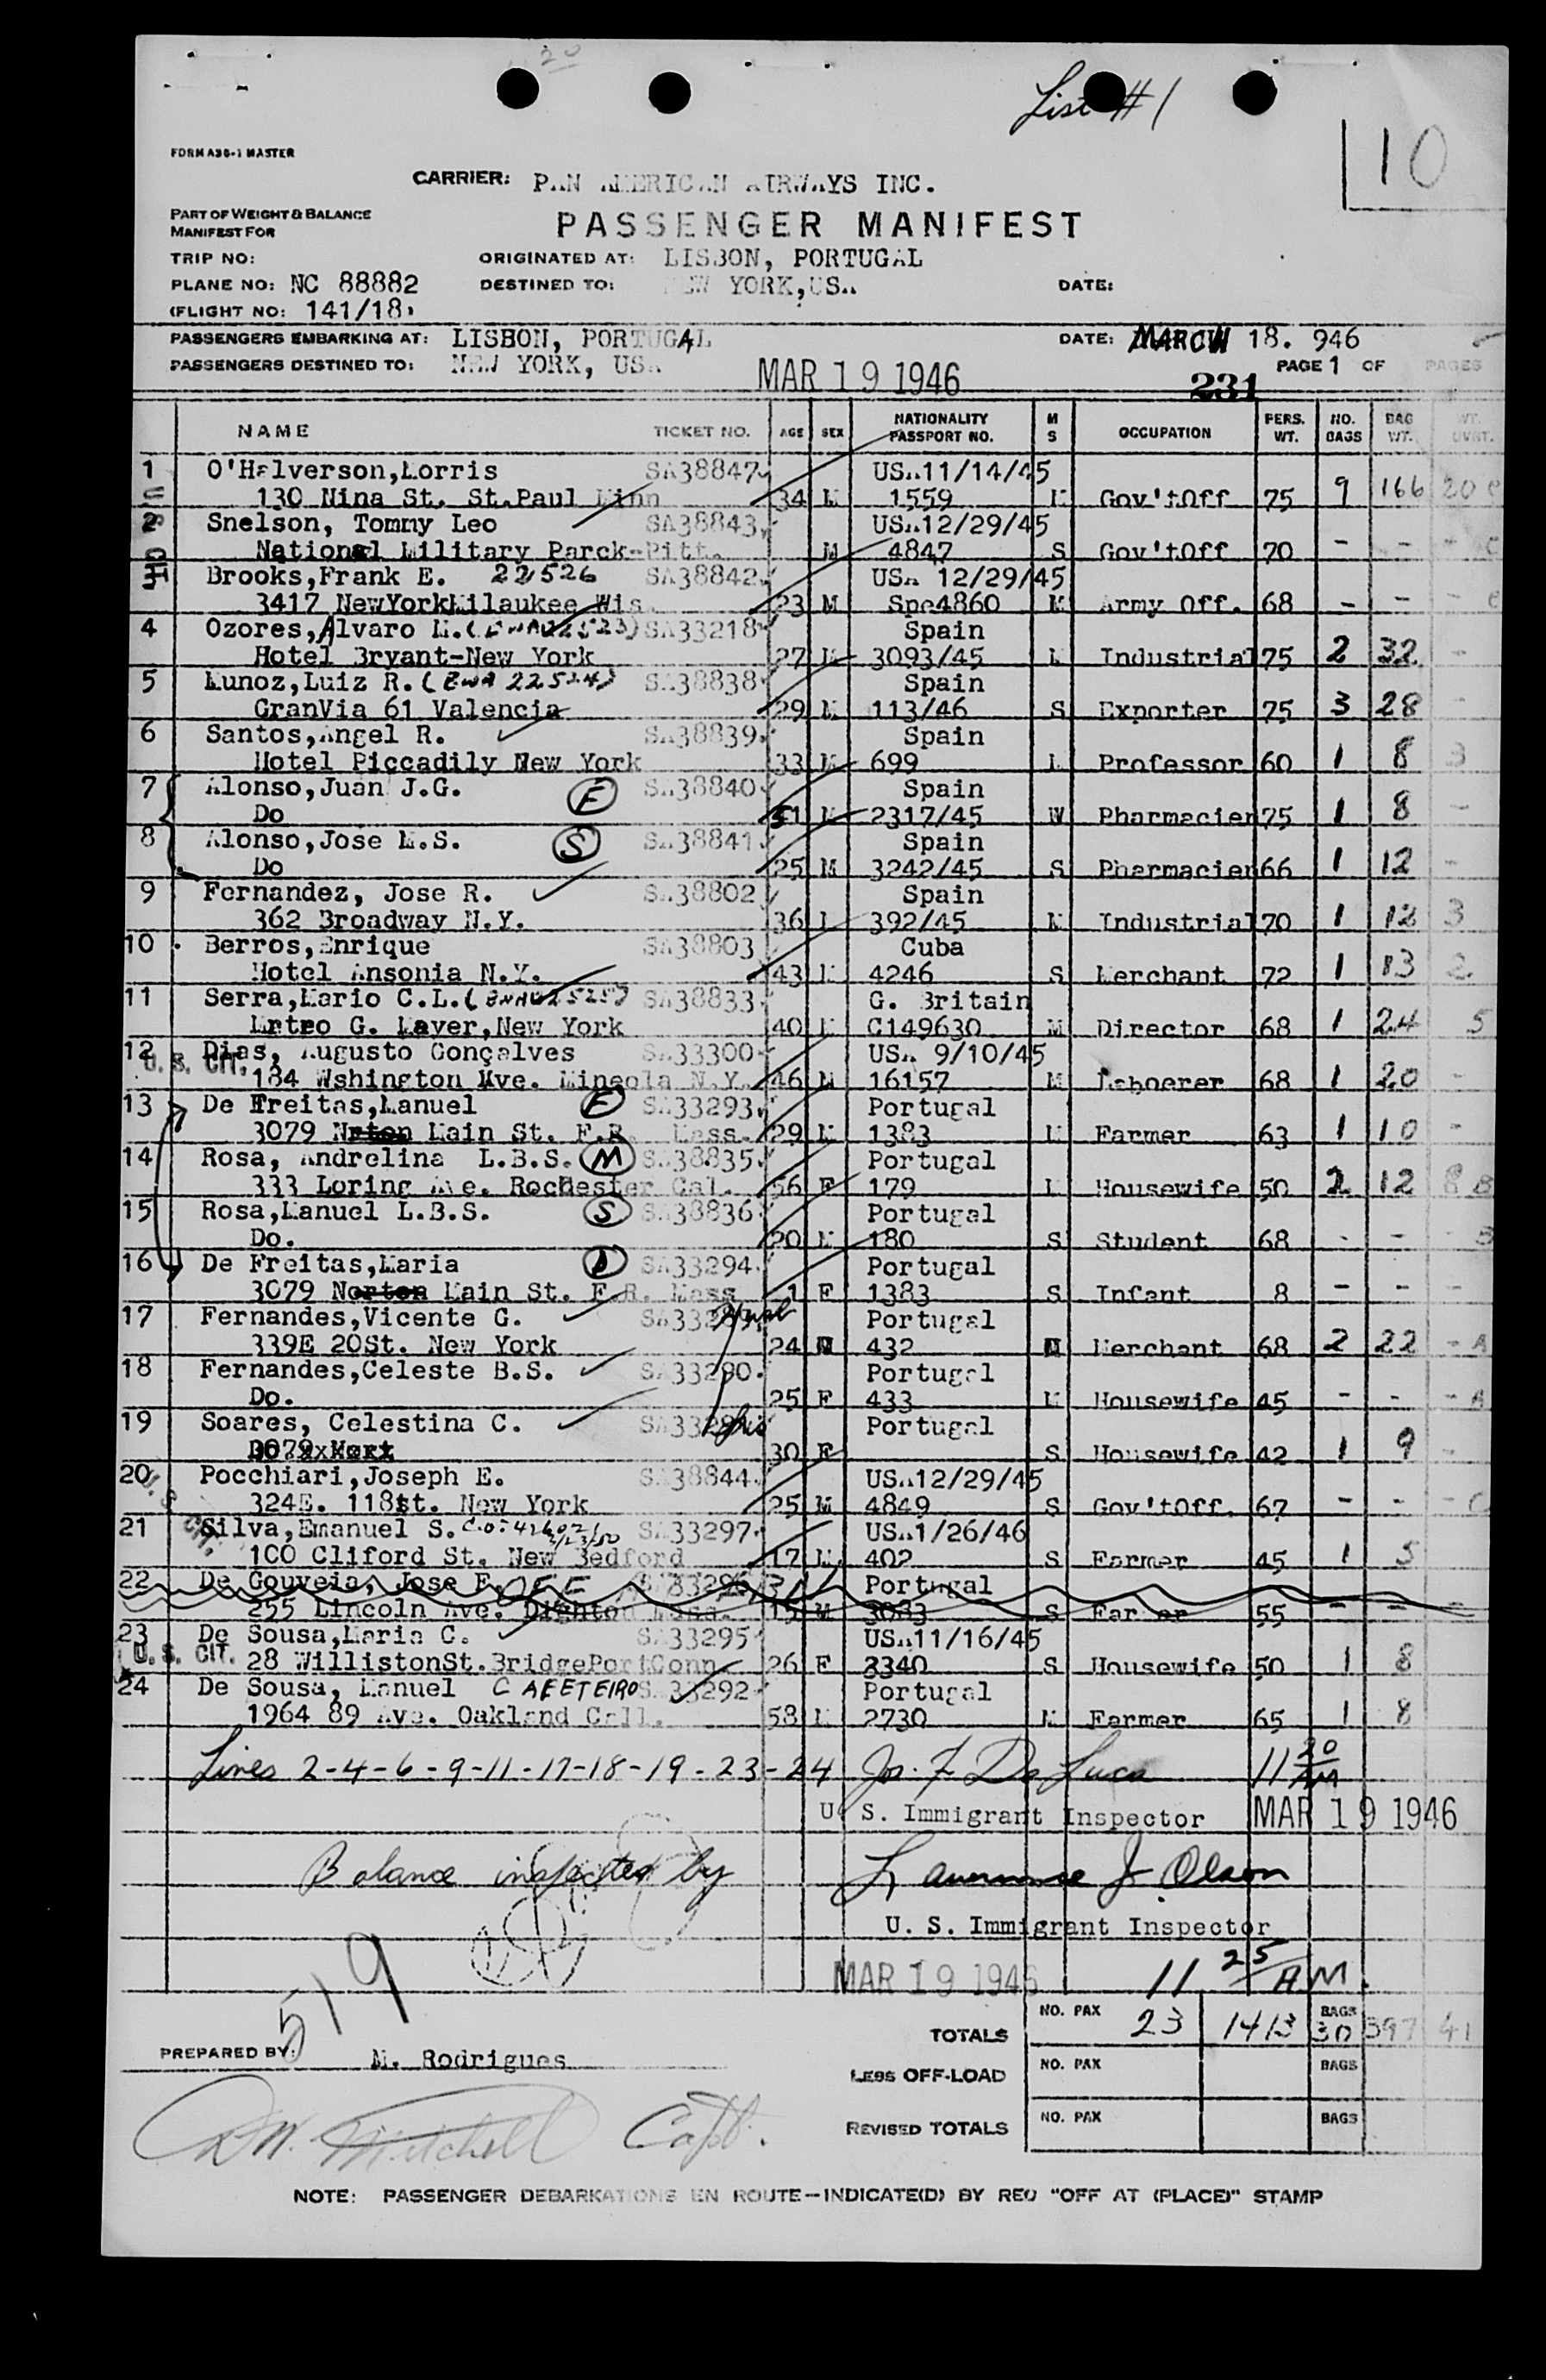 List #1
10
FORM A36-1 MASTER
CARRIER: PAN AMERICAN AIRWAYS INC.
PART OF WEIGHT & BALANCE
MANIFEST FOR
PASSENGER MANIFEST
TRIP NO: ORIGINATED AT: LISBON, PORTUGAL
PLANE NO: NC 88882 DESTINED TO: NEW YORK, USA DATE:
(FLIGHT NO: 141/18
PASSENGERS EMBARKING AT: LISBON, PORTUGAL DATE: MARCH 18. 946
PASSENGERS DESTINED TO: NEW YORK, USA MAR 19 1946 231 PAGE 1 OF PAGES
NAME TICKET NO. AGE SEX NATIONALITY PASSPORT NO. M S OCCUPATION PERS. WT. NO. BAGS BAG WT. WT. OVRT.
1 O'Halverson,Lorris SA38847 USA11/14/45
130 Nina St. St.Paul Minn 34 M 1559 M Gov'tOff 75 9 166 20 C
2 Snelson, Tommy Leo SA38843 USA12/29/45
National Military Parck-Pitt. M 4847 S Gov'tOff 70 - - - C
Brooks,Frank E. 22526 SA38842 USA 12/29/45
3417 NewYorkMilaukee Wis 23 M Spe4860 M Army Off. 68 - - - C
4 Ozores,Alvaro M. SA33218 Spain
Hotel Bryant-New York 27 M 3093/45 M Industrial 75 2 32 -
5 Munoz,Luiz R. SA38838 Spain
GranVia 61 Valencia 29 M 113/46 S Exporter 75 3 28 -
6 Santos,Angel R. SA38839 Spain
Hotel Piccadily New York 33 M 699 M Professor 60 1 8 3
7 Alonso,Juan J.G. F SA38840 Spain
Do 51 M 2317/45 W Pharmacien 75 1 8 -
8 Alonso,Jose M.S. S SA38841 Spain
Do 25 M 3242/45 S Pharmacien 66 1 12 -
9 Fernandez, Jose R. SA38802 Spain
362 Broadway N.Y. 36 M 392/45 M Industrial 70 1 12 3
10 Berros,Enrique SA38803 Cuba
Hotel Ansonia N.Y. 43 M 4246 S Merchant 72 1 13 2
11 Serra,Mario C.L. SA38833 G. Britain
Mrtro G. Mayer,New York 40 M C149630 M Director 68 1 24 5
12 Dias, Augusto Gonçalves SA33300 USA 9/10/45
U. S. CIT. 184 Wshington Ave. Mineola N.Y. 46 M 16157 M Laboerer 68 1 20 -
13 De Freitas,Manuel F SA33293 Portugal
3079 Main St. F.R. Mass. 29 M 1383 M Farmer 63 1 10 -
14 Rosa, Andrelina L.B.S. M SA38835 Portugal
333 Loring Ave. Rochester Cal. 56 F 179 M Housewife 50 2 12 8 B
15 Rosa,Manuel L.B.S. S SA38836 Portugal
Do. 20 M 180 S Student 68 - - - B
16 De Freitas,Maria D SA33294 Portugal
3079 Norton Main St. F.R. Mass 1 F 1383 S Infant 8 - - -
17 Fernandes,Vicente G. Portugal
339E 20St. New York 24 M 432 M Merchant 68 2 22 - A
18 Fernandes,Celeste B.S. SA33290 Portugal
Do. 25 F 433 M Housewife 45 - - - A
19 Soares, Celestina C. Portugal
30 F S Housewife 42 1 9 -
20 Pocchiari,Joseph E. SA38844 USA12/29/45
324E. 118st. New York 25 M 4849 S Gov'tOff. 67 - - - C
21 Silva,Emanuel S. SA33297 USA1/26/46
100 Cliford St. New Bedford 17 M 402 S Farmer 45 1 5
22 De Gouveia, Jose F. OFF Portugal
255 Lincoln Ave. Dighton Mass. M 3083 S Farmer 55 - - -
23 De Sousa,Maria C. SA33295 USA11/16/45
U. S. CIT. 28 WillistonSt.BridgePortConn 26 F 3340 S Housewife 50 1 8
24 De Sousa, Manuel CAFETEIRO SA33292 Portugal
1964 89 Ave. Oakland Call. 58 M 2730 M Farmer 65 1 8
Lines 2-4-6-9-11-17-18-19-23-24 Jos. F. De Luca 11 20 AM
U. S. Immigrant Inspector MAR 19 1946
Balance inspected by Lawrence J. Olson
U. S. Immigrant Inspector
MAR 19 1946 11 25 A.M.
519
TOTALS NO. PAX 23 1413 BAGS 30 397 41
PREPARED BY: M. Rodrigues
LESS OFF-LOAD NO. PAX BAGS
Mitchell Capt.
REVISED TOTALS NO. PAX BAGS
NOTE: PASSENGER DEBARKATIONS EN ROUTE—INDICATE(D) BY RED "OFF AT (PLACE)" STAMP